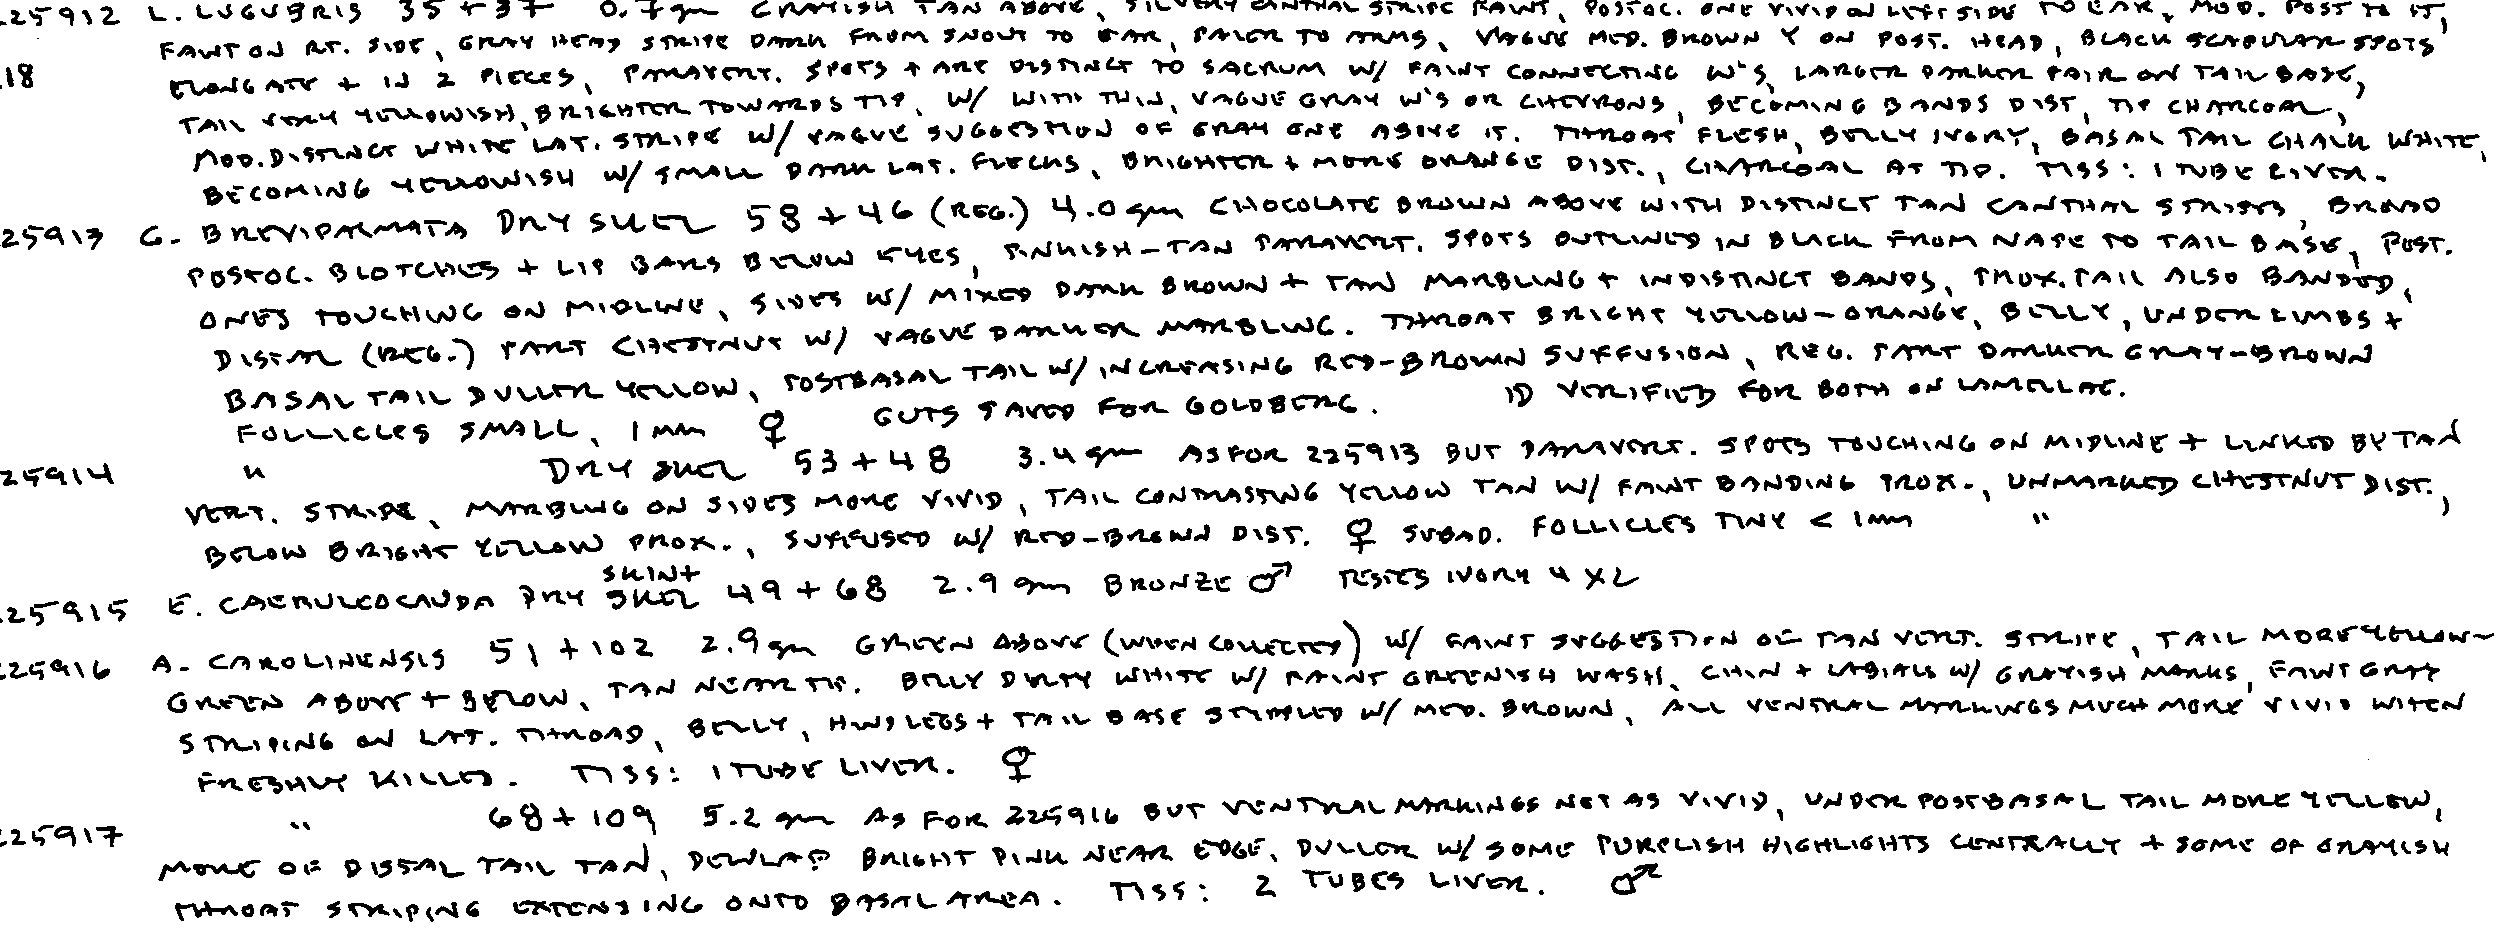 225912 L. LUGUBRIS 35 + 37 0.7 gm GRAYISH TAN ABOVE, SILVERY CANTHAL STRIPE FAINT, POSTOC. ONE VIVID ON LEFT SIDE TO EAR, MOD. POST TO IT,
FAINT ON RT. SIDE, GRAY HEAD STRIPE DARK FROM SNOUT TO EAR, PALER TO ARMS, VAGUE MED. BROWN Y ON POST. HEAD, BLACK SCAPULAR SPOTS
18 ELONGATE + IN 2 PIECES, PARAVERT. SPOTS + ARE DISTINCT TO SACRUM W/ FAINT CONNECTING W'S, LARGER DARKER PAIR ON TAIL BASE,
TAIL VERY YELLOWISH, BRIGHTER TOWARDS TIP, W/ WITH THIN, VAGUE GRAY W'S OR CHEVRONS, BECOMING BANDS DIST, TIP CHARCOAL,
MOD. DISTINCT WHITE LAT. STRIPE W/ VAGUE SUGGESTION OF GRAY ONE ABOVE IT. THROAT FLESH, BELLY IVORY, BASAL TAIL CHALK WHITE,
BECOMING YELLOWISH W/ SMALL DARK LAT. FLECKS, BRIGHTER + MORE ORANGE DIST., CHARCOAL AT TIP. TISS: 1 TUBE LIVER.
225913 G. BREVIPALMATA DRY SKEL 58 + 46 (REG.) 4.0 gm CHOCOLATE BROWN ABOVE WITH DISTINCT TAN CANTHAL STRIPES, BROAD
POSTOC. BLOTCHES + LIP BARS BELOW EYES, PINKISH-TAN PARAVERT. SPOTS OUTLINED IN BLACK FROM NAPE TO TAIL BASE, POST.
ONES TOUCHING ON MIDLINE, SIDES W/ MIXED DARK BROWN + TAN MARBLING + INDISTINCT BANDS, PROX. TAIL ALSO BANDED,
DISTAL (REG.) PART CHESTNUT W/ VAGUE DARKER MARBLING. THROAT BRIGHT YELLOW-ORANGE, BELLY, UNDER LIMBS +
BASAL TAIL DULLER YELLOW, POSTBASAL TAIL W/ INCREASING RED-BROWN SUFFUSION, REG. PART DARKER GRAY-BROWN
FOLLICLES SMALL, 1 mm ♀ GUTS SAVED FOR GOLDBERG. ID VERIFIED FOR BOTH ON LAMELLAE.
225914 " DRY SKEL 53 + 48 3.4 gm AS FOR 225913 BUT PARAVERT. SPOTS TOUCHING ON MIDLINE + LINKED BY TAN
VERT. STRIPE, MARBLING ON SIDES MORE VIVID, TAIL CONTRASTING YELLOW TAN W/ FAINT BANDING PROX., UNMARKED CHESTNUT DIST.,
BELOW BRIGHT YELLOW PROX., SUFFUSED W/ RED-BROWN DIST. ♀ SUBAD. FOLLICLES TINY < 1 mm "
225915 E. CAERULEOCAUDA DRY SKIN + SKEL 49 + 68 2.9 gm BRONZE ♂ TESTES IVORY 4 X 2
225916 A. CAROLINENSIS 51 + 102 2.9 gm GREEN ABOVE (WHEN COLLECTED) W/ FAINT SUGGESTION OF TAN VERT. STRIPE, TAIL MORE YELLOW-
GREEN ABOVE + BELOW, TAN NEAR TIP. BELLY DIRTY WHITE W/ FAINT GREENISH WASH, CHIN + LABIALS W/ GRAYISH MARKS, FAINT GRAY
STRIPING ON LAT. THROAD, BELLY, HIND LEGS + TAIL BASE STIPPLED W/ MED. BROWN, ALL VENTRAL MARKINGS MUCH MORE VIVID WHEN
FRESHLY KILLED. TISS: 1 TUBE LIVER. ♀
225917 " 68 + 109 5.2 gm AS FOR 225916 BUT VENTRAL MARKINGS NOT AS VIVID, UNDER POSTBASAL TAIL MORE YELLOW,
MORE OF DISTAL TAIL TAN, DEWLAP BRIGHT PINK NEAR EDGE, DULLER W/ SOME PURPLISH HIGHLIGHTS CENTRALLY + SOME OF GRAYISH
THROAT STRIPING EXTENDING ONTO BASAL AREA. TISS: 2 TUBES LIVER. ♂